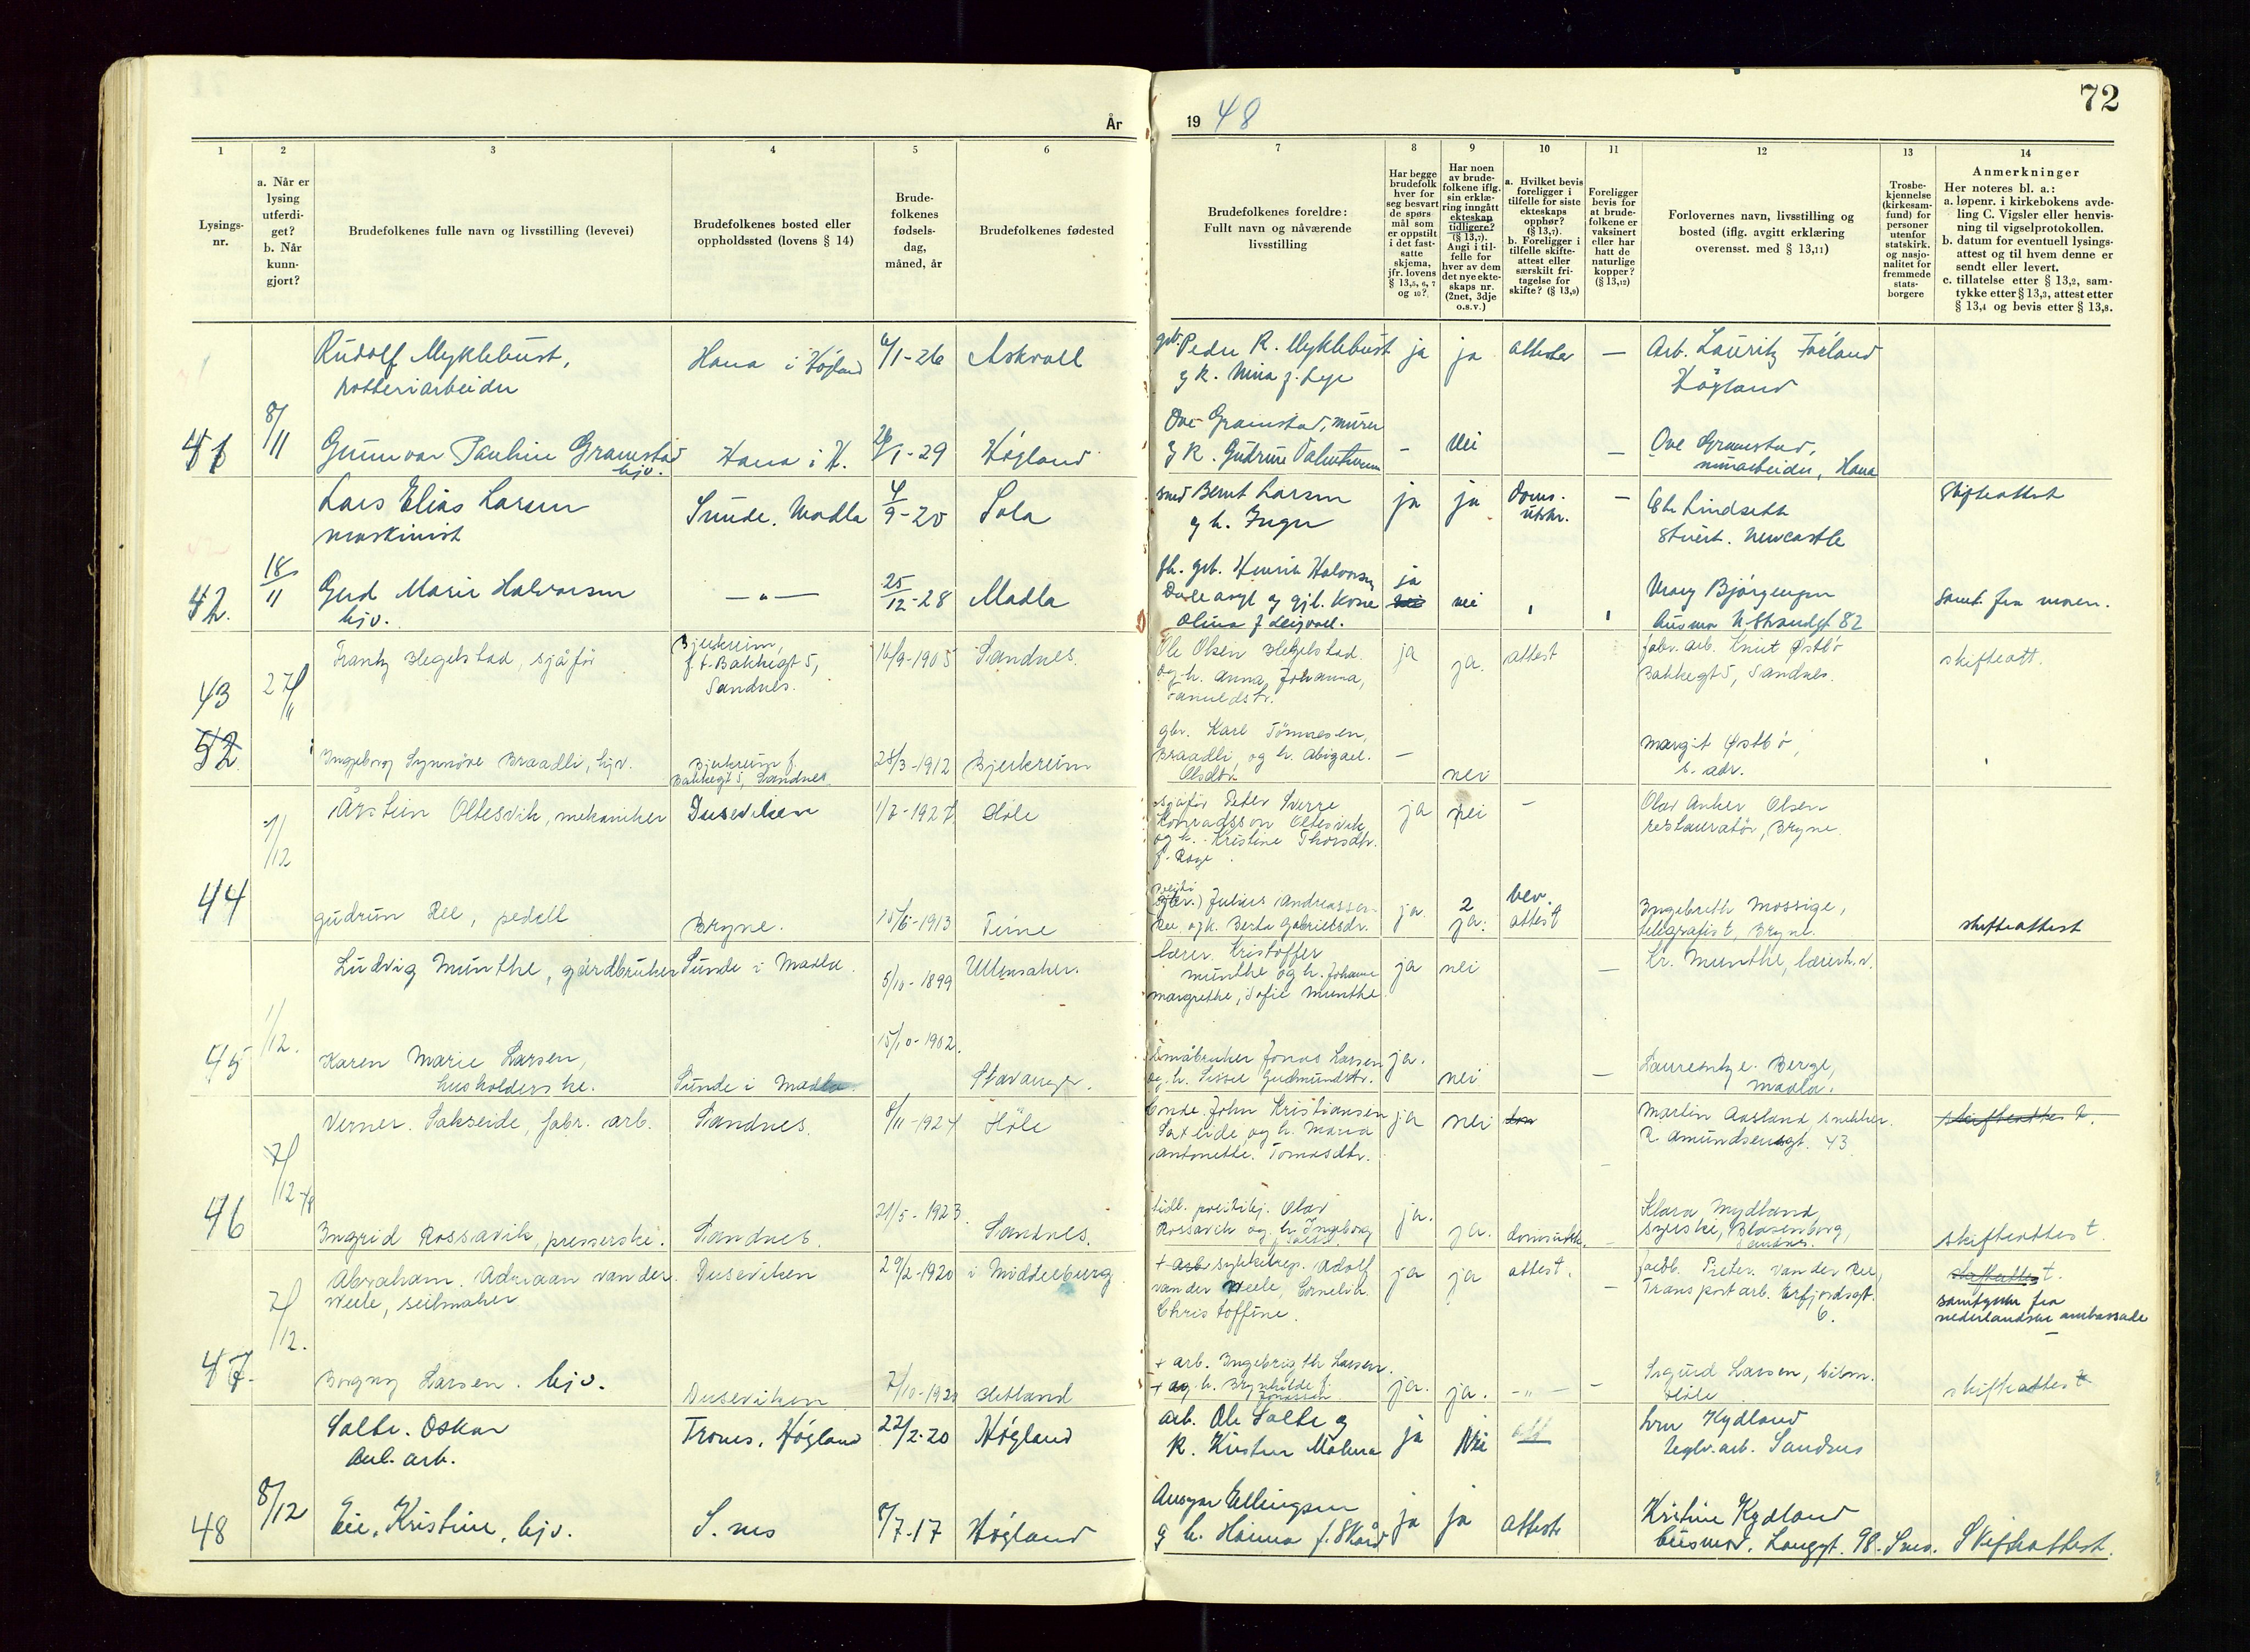 72
År
19 48
1
2
3
4
5
6
7
8
9
10
11
12
13
14
Lysings-
nr.
a. Når er
lysing
utferdi-
get?
b. Når
kunn-
gjort?
Brudefolkenes fulle navn og livsstilling (levevei)
Brudefolkenes bosted eller
oppholdssted (lovens § 14)
Brude-
folkenes
fødsels-
dag,
måned, år
Brudefolkenes fødested
Brudefolkenes foreldre:
Fullt navn og nåværende
livsstilling
Har begge
brudefolk
hver for
seg besvart
de spørs
mål som
er oppstilt
i det fast-
satte
skjema,
jfr. lovens
§ 13,5, 6, 7
og 10?
Har noen
av brude-
folkene iflg.
sin erklæ-
ring inngått
ekteskap
tidligere?
(§ 13,7).
Angi i til-
felle for
hver av dem
det nye ekte-
skaps nr.
(2net, 3dje
o.s.v.)
a. Hvilket bevis
foreligger i
tilfelle for siste
ekteskaps
opphør?
(§ 13,7).
b. Foreligger i
tilfelle skifte-
attest eller
særskilt fri-
tagelse for
skifte? (§ 13,9)
Foreligger
bevis for
at brude-
folkene er
vaksinert
eller har
hatt de
naturlige
kopper?
(§ 13,12)
Forlovernes navn, livsstilling og
bosted (iflg. avgitt erklæring
overensst. med § 13,11)
Trosbe-
kjennelse
(kirkesam-
fund) for
personer
utenfor
statskirk.
og nasjo-
nalitet for
fremmede
stats-
borgere
Anmerkninger
Her noteres bl. a.:
a. løpenr. i kirkebokens avde-
ling C. Vigsler eller henvis-
ning til vigselprotokollen.
b. datum for eventuell lysings-
attest og til hvem denne er
sendt eller levert.
c. tillatelse etter § 13,2, sam-
tykke etter § 13,3, attest etter
§ 13,4 og bevis etter § 13,8.
Rudolf Myklebust, Hana i Høyland 6/1-26 Askvoll Peder R. Myklebust ja ja attester — Arb. Lauritz
potteriarbeider Høyland
41 8/11 Gunnvor Pauline Gramstad Hana i H. 29 Høyland
hjv.
Ove Gramstad, murer
— nei — Ove Gramstad,
Hana
Lars Elias Larsen Sunde. Madla 4/9-20 Sola smed Bernt Larsen ja ja doms- — Lindseth skifteattest
maskinist g h. Inger utskr. Stuert. Newcastle
42. 18/11 Gerd Marie Halvorsen —"— 25/12-28 Madla Henrik Halvorsen ja nei Bjørgensen samt. fra moren.
hjv. Olina 82
43 27/11 Frantz Hegelstad, sjåfør Bjerkreim, 16/9-1905 Sandnes. Ole Olsen Hegelstad ja ja. attest fabr. arb. Knut Østbø skifteatt.
f. t. Bakkegt 5, og h. Anna Johanna, Bakkegt 5, Sandnes.
Sandnes.
52
Ingeborg Synnøve Braadli, hjv. Bjerkreim f. 28/3-1912 Bjerkreim gbr. Karl Tønnesen, — nei Margit Østbø,
Bakkegt 5, Sandnes Braadli, og h. Abigael. s. adr.
Olsdtr.
1/12 Årstein Oltesvik, mekaniker Duseviken 1/7-1927 Høle sjåfør Peter Sverre ja nei — Olav Anker Olsen
Konradsson Oltesvik restauratør, Bryne.
og h. Kristine Thorsdtr.
44 Gudrun Ree, pedell Bryne. 15/6-1913 Time Julius Andreassen ja. 2 bev. Ingebreth Mossige,
Ree, og k. Berta Gabrielsdr. ja. attest telegrafist, Bryne. skifteattest
Ludvig Munthe, gårdbruker Sunde i Madla. 5/10-1899 Ullensaker. lærer. Kristoffer ja nei — Kr. Munthe,
Munthe og h. Johanne
Margrethe, Sofie Munthe
45 1/12. Karen Marie Larsen, Sunde i Madla. 15/10-1902. Stavanger. Småbruker Jonas Larsen ja. nei — Berge,
husholderske. og h. Sissel Gudmundsdtr. Madla.
Verner. Sakseide, fabr. arb. Sandnes. 8/11-1924 Høle John Kristiansen ja nei Martin Aasland, snekker. skifteattest.
Sakseide og h. Maria R. Amundsensgt. 43
Antonette. Tomasdtr.
46 7/12-48 Ingrid Rossavik, presserske. Sandnes. 21/5-1923. Sandnes. Olav ja. ja. domsutskr. — Klara Mydland, skifteattest.
Rossavik og h. Ingeborg syerske, Blåsenborg,
Sandnes.
Abraham. Adriaan van der Duseviken 29/2-1920 i Middelburg + Adolf ja ja attest. — Pieter. van der Ree,
Weele, seilmaker van der Weele, Cornelia Transportarb. Erfjordsgt. samtykke fra
Christoffine. 6. nederlandske ambassade
47. 7/12. Borgny Larsen. hjv. Dusevikem 7/10-1920 Hetland + arb. Ingebrigth Larsen. ja. ja. —"— — Sigurd Larsen, skifteattest
+ og h. Brynhilde f. Høle
Jonassen
Salte. Oskar Trones, Høyland 22/2-20 Høyland arb. Ole Salte og ja Nei att Kydland
arb. k. Kirsten Malena arb. Sandnes
48 8/12 Eie, Kristine, hjv. S. nes 8/7-17 Høyland Ansgar Ellingsen ja ja attest Kristine Kydland
g h. Hanna f. Skård husmor. Langgt. 98. Snes. Skifteattest.